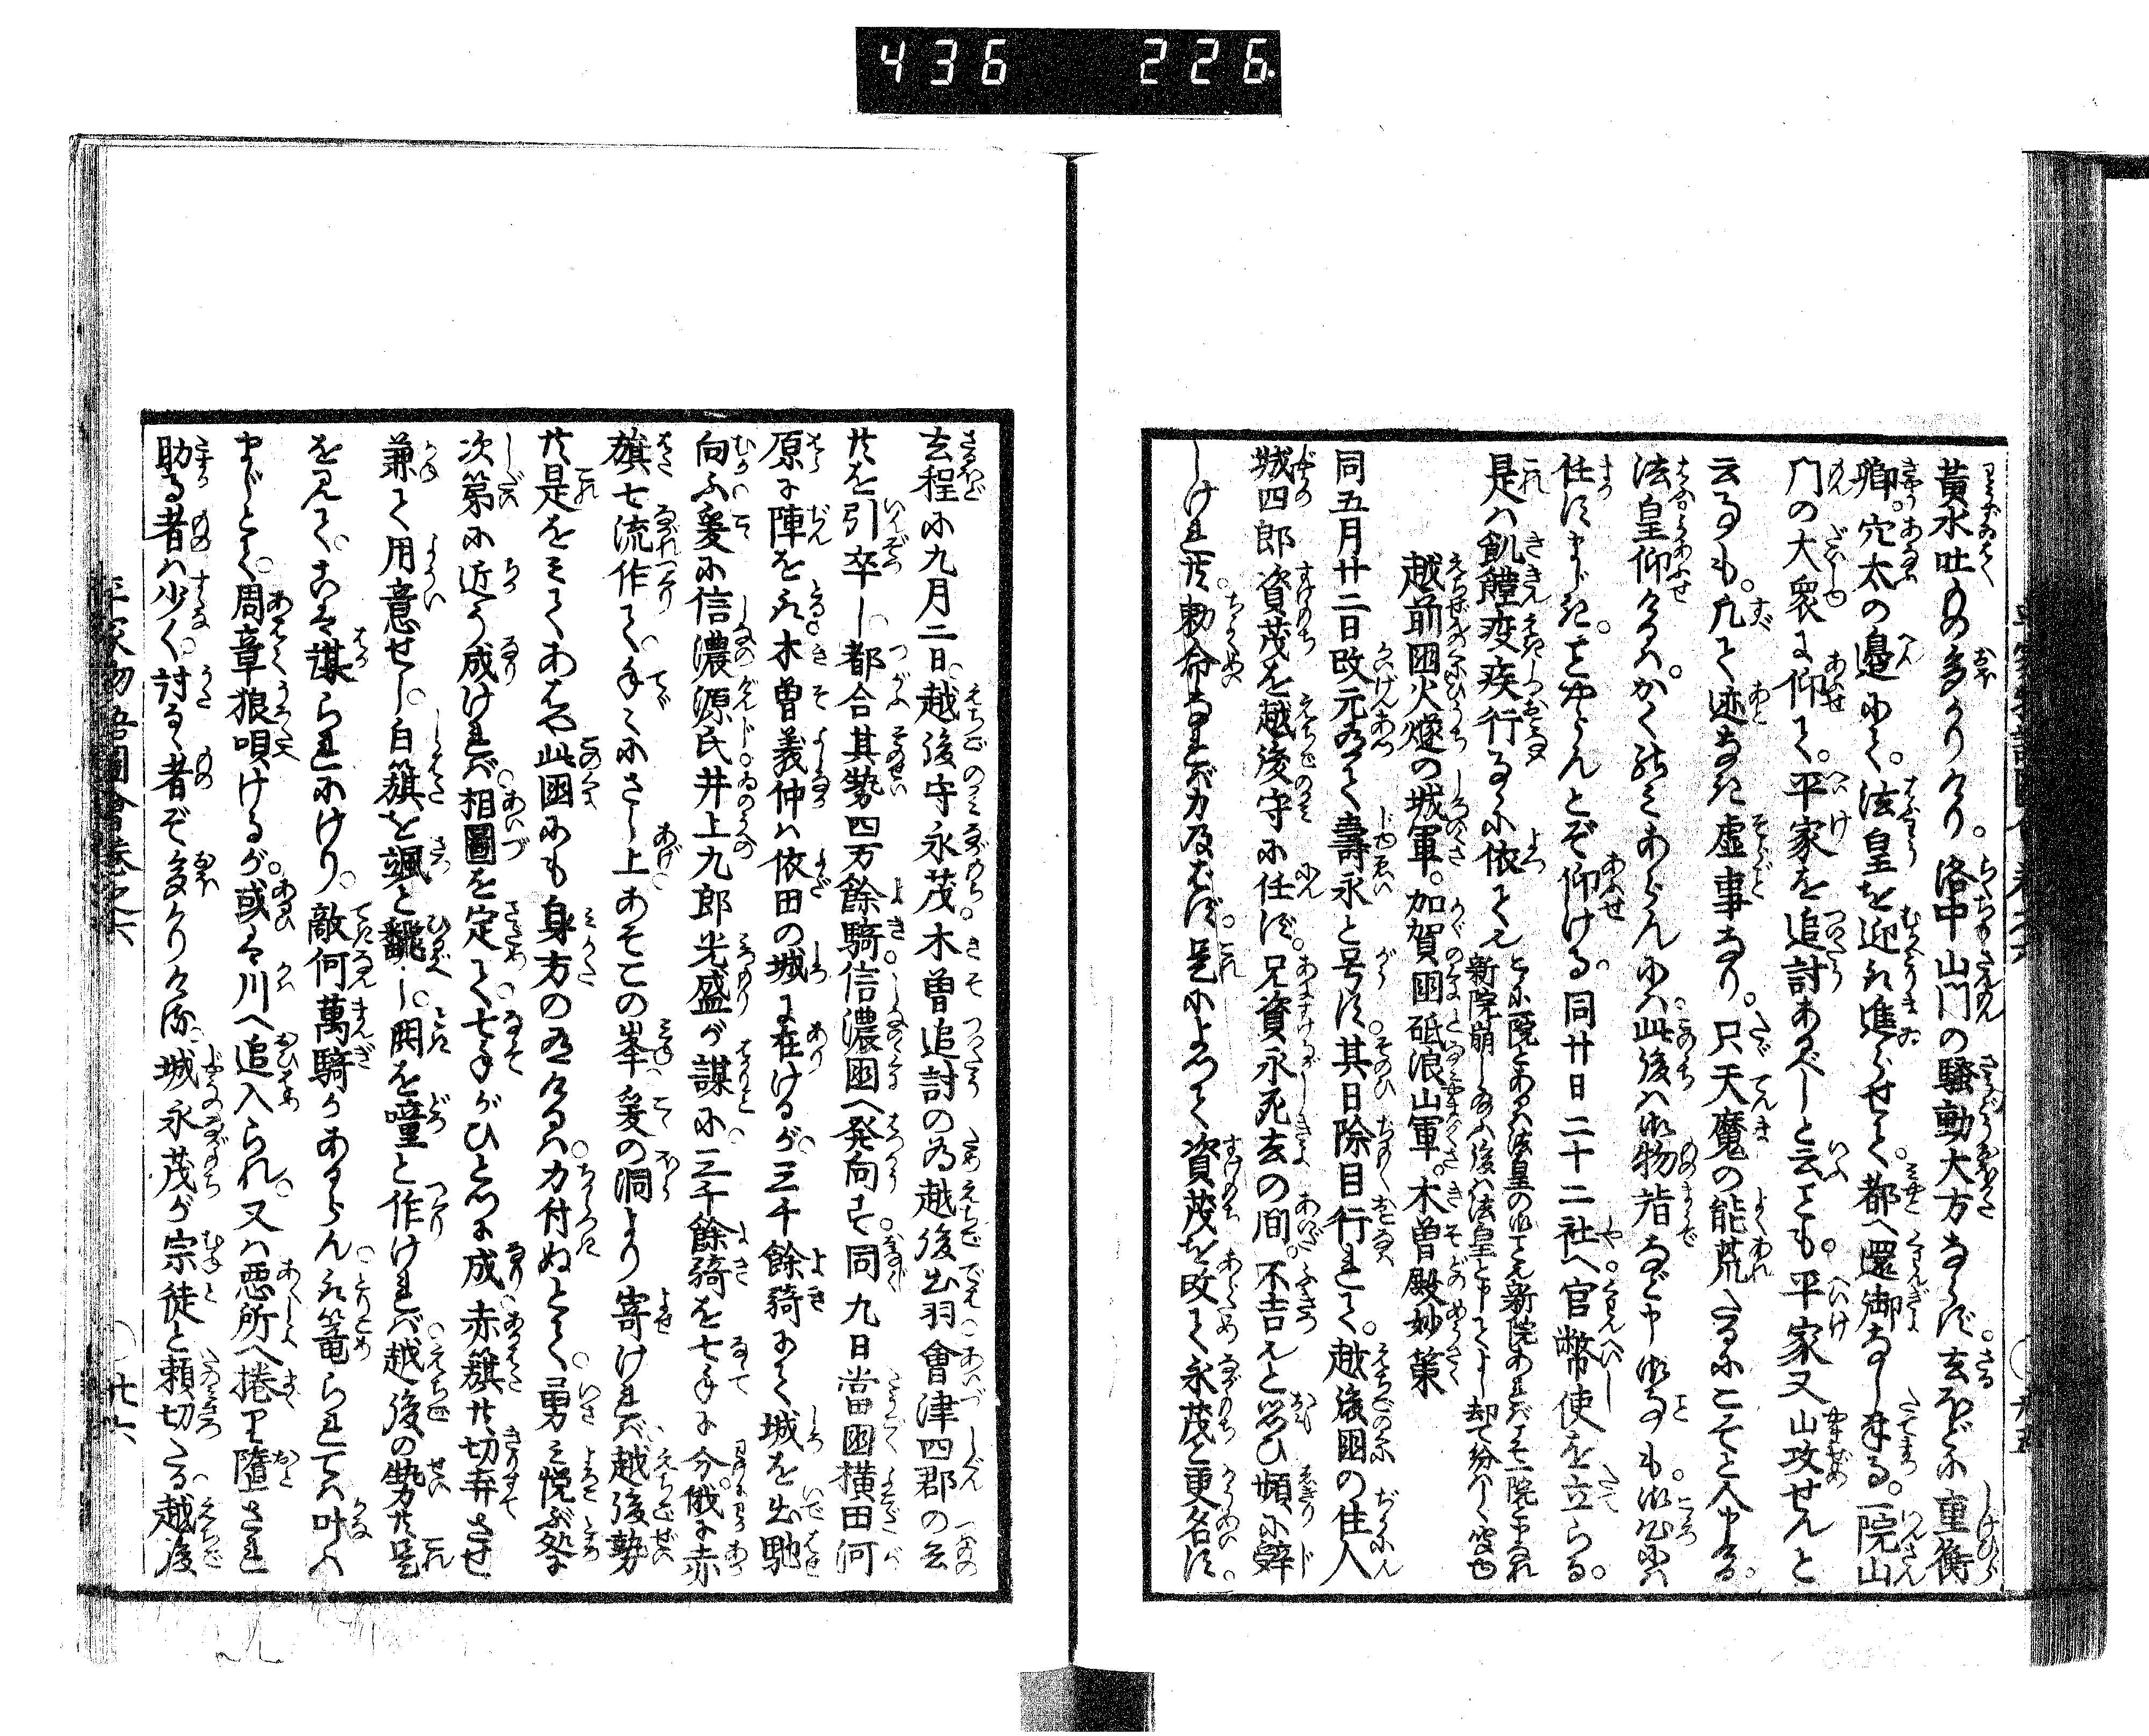 436 226
黄水吐もの多かりけり。洛中山門の騒動大方ならず。去るほどに重衡
卿。穴太の邊にて。法皇を迎取進らせて。都へ還御なし奉る。一院山
門の大衆に仰て。平家を追討あるべしと云ども。平家又山攻せんと
云るも。凡て迹なき虚事なり。只天魔の能荒たるにこそと人申ける。
法皇仰けるハ。かくのミあらんにハ。此後ハ御物詣など申御事も。御心にハ
任すまじき。ことやらんとぞ仰ける。同廿日二十二社へ官幣使を立らる。
是ハ飢饉疫疾行るゝに依て也
越前国火燧の城軍。加賀国砥浪山軍。木曽殿妙策
同五月廿二日改元ありて壽永と号す。其日除目行れて。越後国の住人
城四郎資茂を越後守に任ず。兄資永死去の間。不吉也と思ひ頻に辞
しけれ共。勅命なれバ力及ばず。是によつて資茂を改て永茂と更名す。
去程に九月二日。越後守永茂。木曽追討の為越後出羽會津四郡の兵
共を引卒し。都合其勢四万餘騎。信濃国へ発向す。同九日當国横田河
原に陣をとる。木曽義仲ハ依田の城に在けるが。三千餘騎にて城を出馳
向ふ。爰に信濃源氏井上九郎光盛が謀に。三千餘騎を七手に分。俄に赤
旗七流作て。手々にさし上。あそこの峯。爰の洞より寄けれバ。越後勢
共是をミてあはや此国にも身方の有けるハ。力付ぬとて。勇ミ悦ぶ処に
次第に近う成けれバ。相圖を定て。七手がひとつに成。赤籏共切弃させ
兼て用意せし。白籏を颯と飜し。鬨を噇と作けれバ。越後の勢共是
を見て。こは謀られにけり。敵何萬騎かあるらん。取篭られてハ叶ハ
まじとて。周章狼唄けるが。或は川へ追入られ。又ハ悪所へ捲り墮され
助る者ハ少く。討るゝ者ぞ多かりける。城永茂が宗徒と頼切たる。越後
平家物語圖會巷之六
廿六